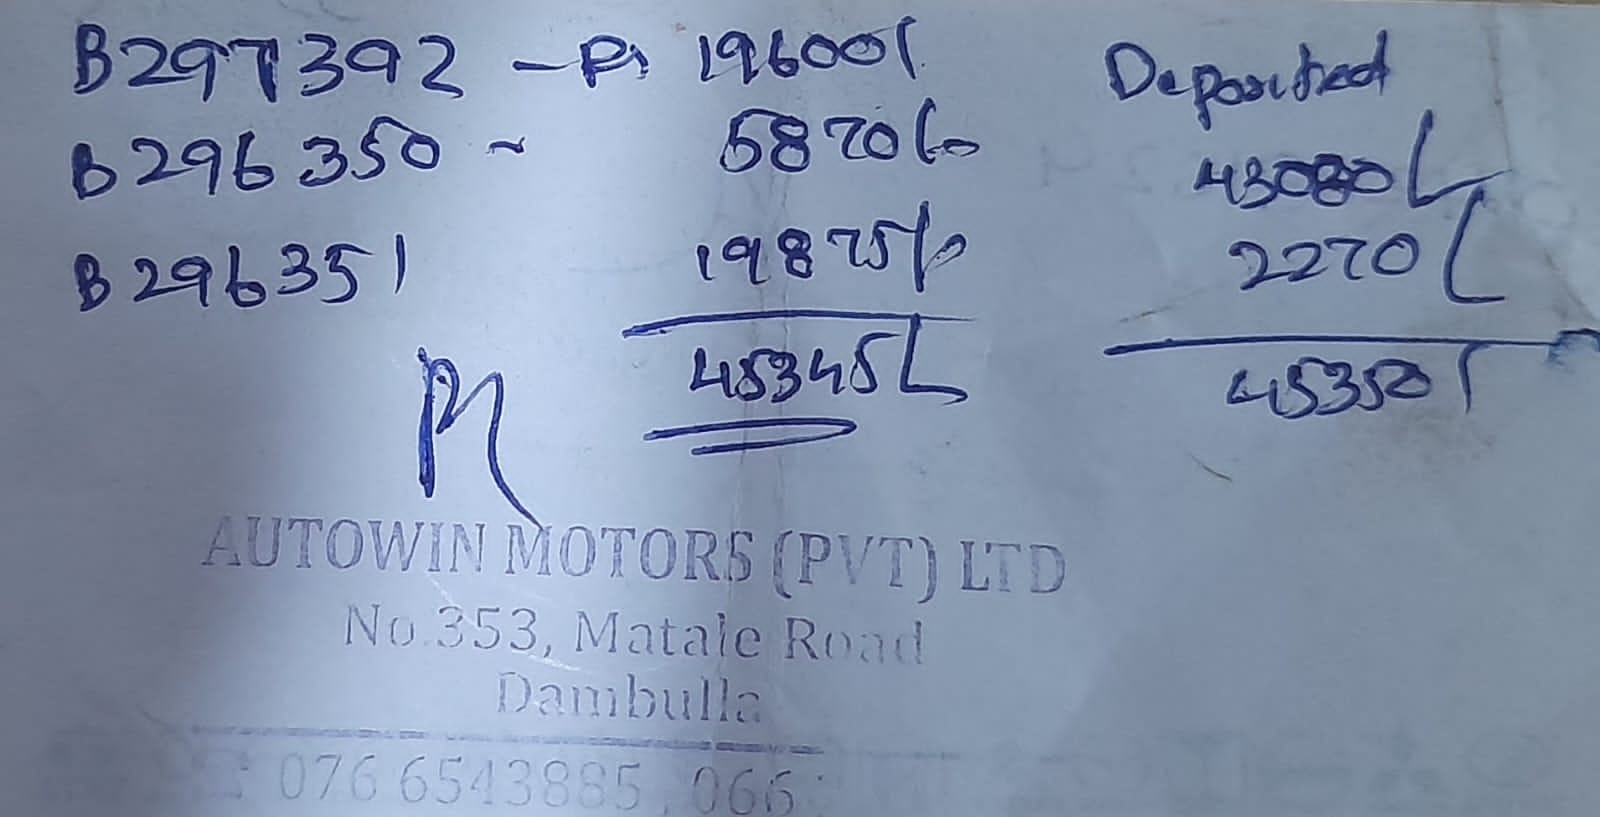 B297392 - Rs 19600/.
B296350 ~ 5870/-
B296351 19875/-
45345/-
Deposited
43080/-
2270/-
45350/
AUTOWIN MOTORS (PVT) LTD
No.353, Matale Road
Dambulla
: 076 6543885, 066